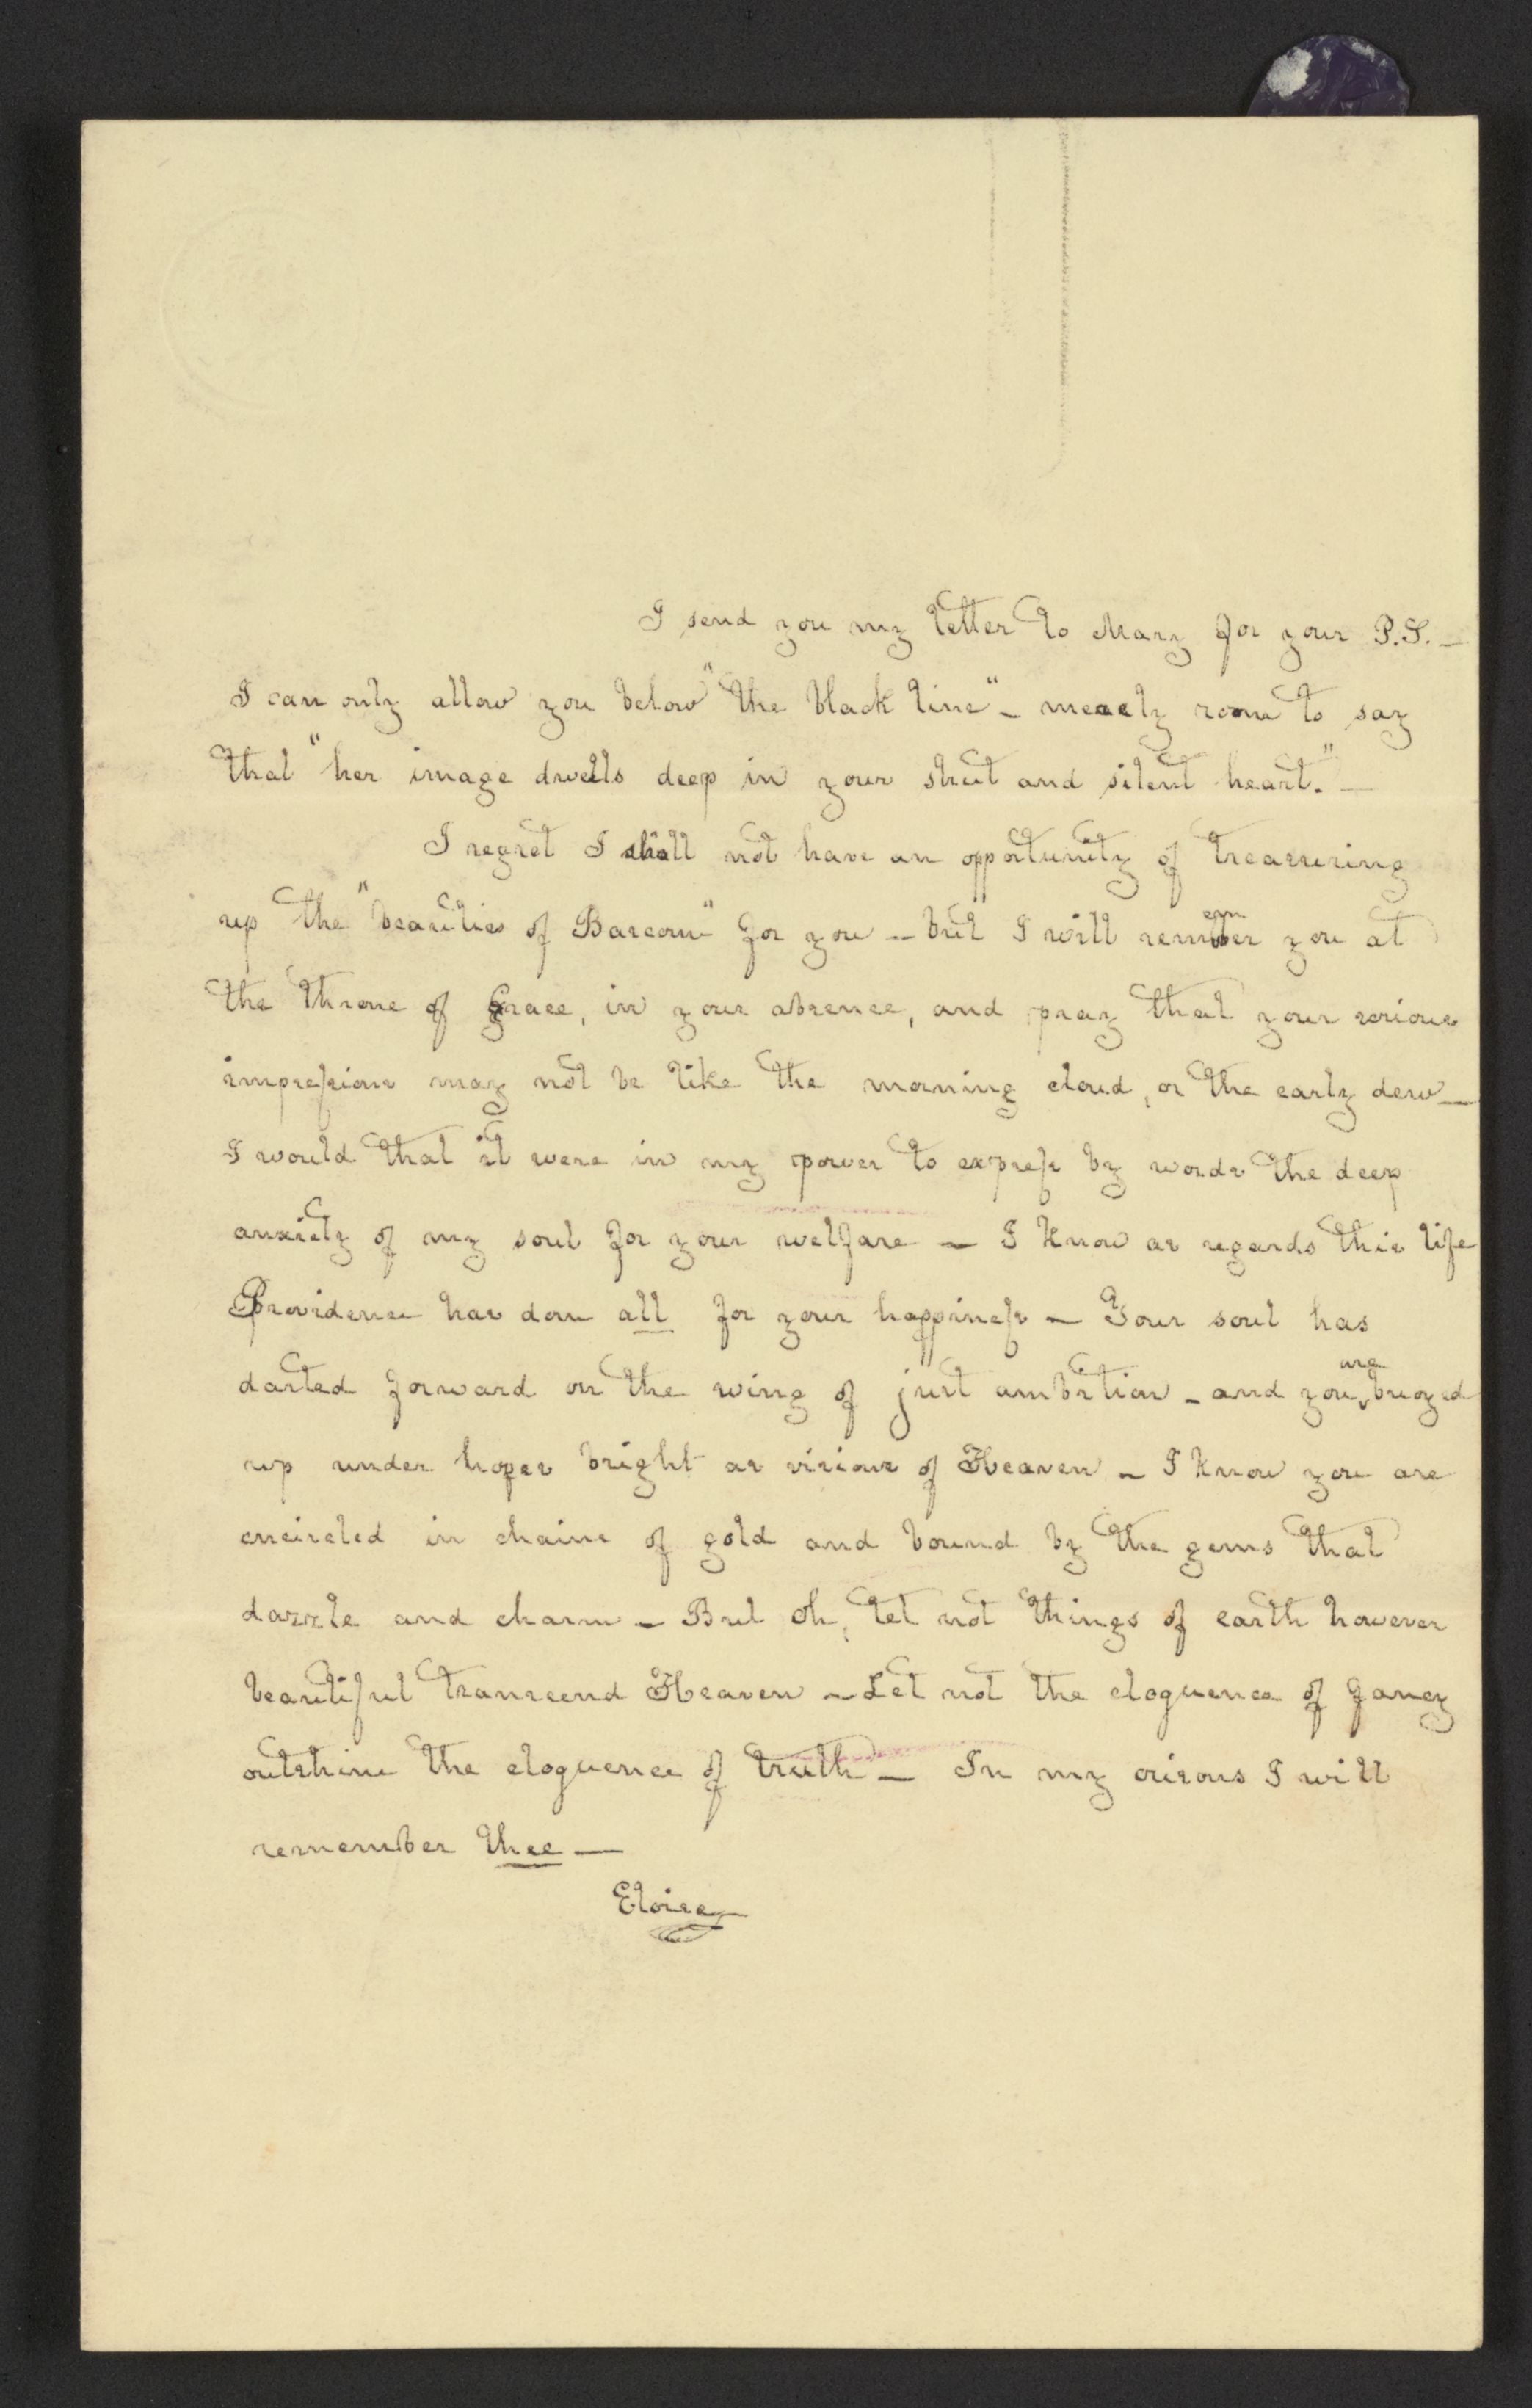 I send you my letter to Mary for your P.S. —
I can only allow you below "the black line" – merely room to say
that "her image dwells deep in your shut and silent heart." —
I regret I shall not have an opportunity of treasuring
up the "beauties of Bascom" for you – but I will remember you at
the throne of Grace, in your absence, and pray that your serious
impressions may not be like the morning cloud, or the early dew —
I would that it were in my power to express by words the deep
anxiety of my soul for your welfare – I know as regards this life
Providence has done all for your happiness – Your soul has
darted forward on the wing of just ambition – and you are buoyed
up under hopes bright as visions of Heaven – I know you are
encircled in chains of gold and bound by the gems that
dazzle and charm – But oh, let not things of earth however
beautiful transcend Heaven – Let not the eloquence of fancy
outshine the eloquence of truth – In my orisons I will
remember thee —
Eloise